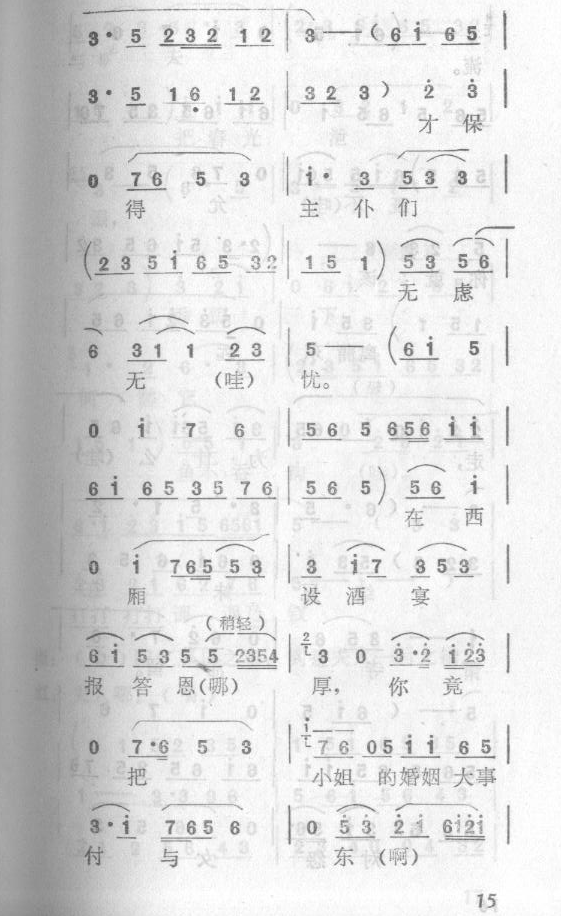 3· 5 232 12 | 3 — (6i 65 |
3· 5 16 12 | 32 3) 2 3 |
才 保
0 76 5 3 | i· 3 53 3 |
得 主 仆 们
(23 5i 65 32 | 15 1) 53 56 |
无 虑
6 31 1 23 | 5 — (6i 5 |
无 (哇) 忧。
0 i 7 6 | 56 5 656 ii |
6i 65 35 76 | 56 5) 56 i |
在 西
0 i 765 53 | 3 i7 353 |
厢 设 酒 宴
(稍轻)
6i 53 5 5 2354 | 2 3 0 3·2 i23 |
报 答 恩(哪) 厚, 你 竟
0 7·6 5 3 | i 76 05 i i 65 |
把 小姐 的婚姻 大事
3·i 765 6 | 0 53 2i 6i2i |
付 与 东 (啊)
15